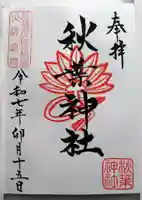 奉拝
秋葉神社
令和七年卯月十五日
秋葉神社